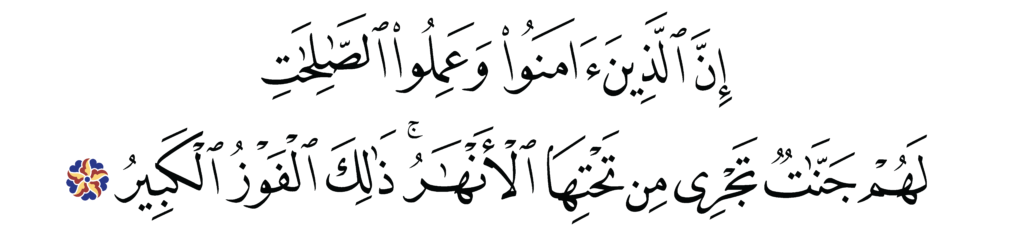 إِنَّ ٱلَّذِينَ ءَامَنُوا۟ وَعَمِلُوا۟ ٱلصَّٰلِحَٰتِ
لَهُمْ جَنَّٰتٌ تَجْرِى مِن تَحْتِهَا ٱلْأَنْهَٰرُ ۚ ذَٰلِكَ ٱلْفَوْزُ ٱلْكَبِيرُ